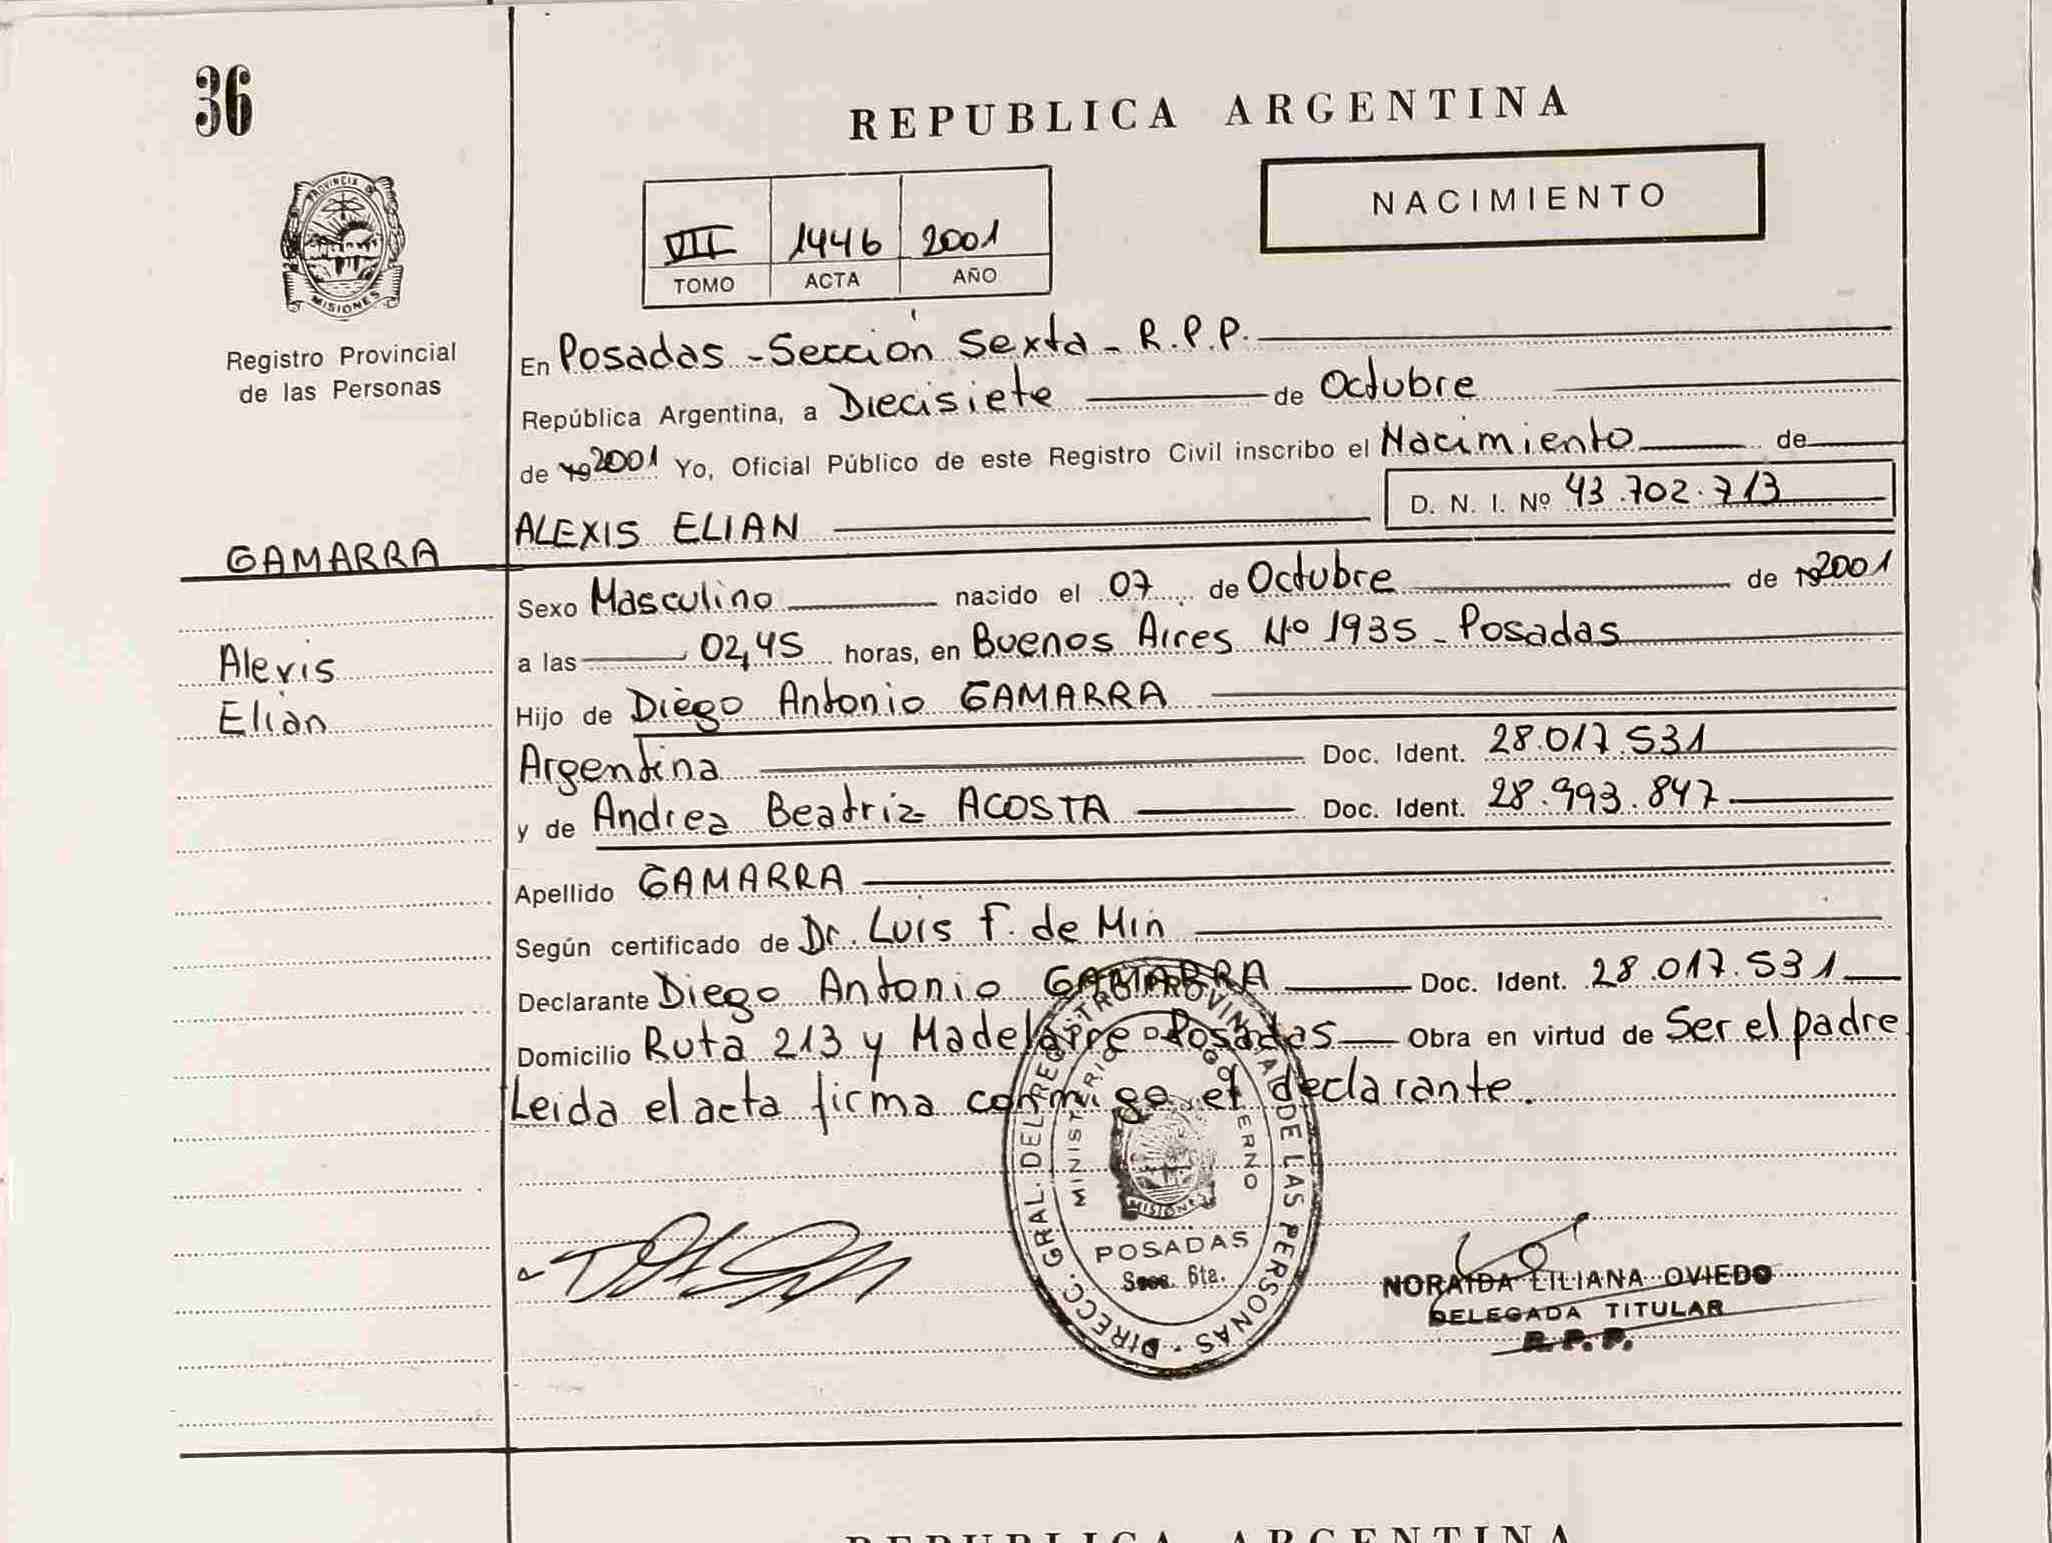 36
REPUBLICA ARGENTINA
NACIMIENTO
VII 1446 2001
TOMO ACTA AÑO
PROVINCIA DE
MISIONES
Registro Provincial
de las Personas
En Posadas - Sección Sexta - R.P.P.
República Argentina, a Diecisiete de Octubre
de 19 2001 Yo, Oficial Público de este Registro Civil inscribo el Nacimiento de
D. N. I. Nº 43.702.713
GAMARRA
ALEXIS ELIAN
Alexis
Elian
Sexo Masculino nacido el 07 de Octubre de 19 2001
a las 02,45 horas, en Buenos Aires Nº 1935 - Posadas
Hijo de Diego Antonio GAMARRA
Argentina Doc. Ident. 28.017.531
y de Andrea Beatriz ACOSTA Doc. Ident. 28.993.847
Apellido GAMARRA
Según certificado de Dr. Luis F. de Min
Declarante Diego Antonio GAMARRA Doc. Ident. 28.017.531
Domicilio Ruta 213 y Posadas Obra en virtud de Ser el padre
Leida el acta firma conmigo el declarante.
DIRECC. GRAL. DEL REGISTRO PROVINCIAL DE LAS PERSONAS
MINISTERIO DE GOBIERNO
MISIONES
POSADAS
Secc. 6ta.
NORAIDA LILIANA OVIEDO
DELEGADA TITULAR
R. P. P.
REPUBLICA ARGENTINA